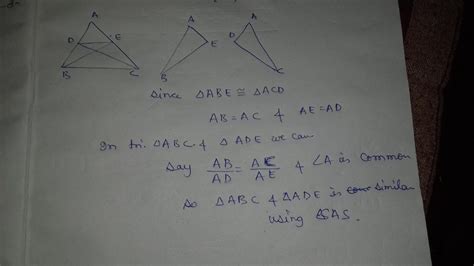 A
D E
B C
A
E
B
A
D
C
Since △ABE ≅ △ACD
AB = AC & AE = AD
In tri. △ABC & △ADE we can
Say AB/AD = AC/AE & ∠A is common
So △ABC & △ADE is similar
using SAS.